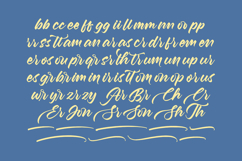 bb cc ee ff gg ii ll mm nn or pp
rr ss tt am an ar as cr dr fr em en
er os ou pr qr sr th tr um un up ur
es gr br im in ir is it om on op or us
wr yr zr zy Ar Br Ch
Er Jon Sr Son Sh Th